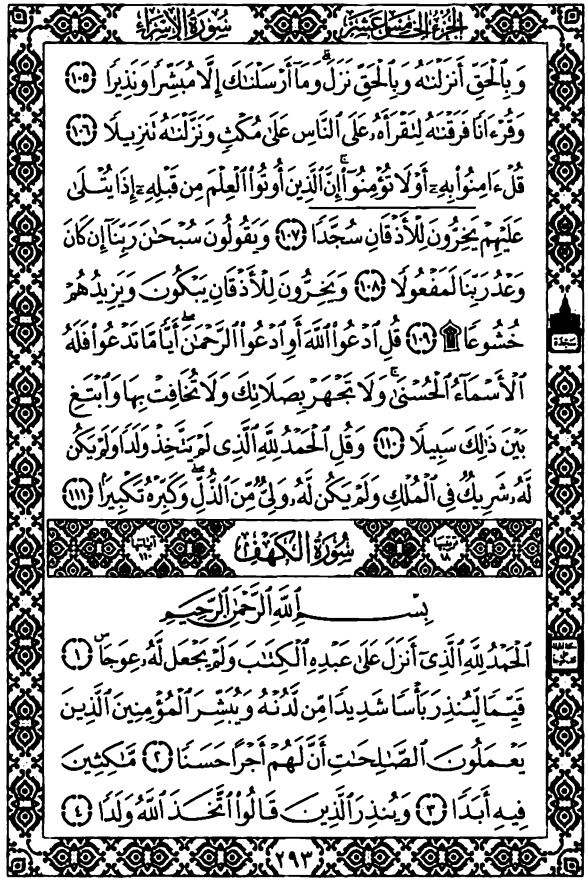 الجزء الخامس عشر
سورة الإسراء
وَبِالْحَقِّ أَنزَلْنَاهُ وَبِالْحَقِّ نَزَلَ ۗ وَمَا أَرْسَلْنَاكَ إِلَّا مُبَشِّرًا وَنَذِيرًا ١٠٥
وَقُرْءَانًا فَرَقْنَاهُ لِتَقْرَأَهُ عَلَى النَّاسِ عَلَىٰ مُكْثٍ وَنَزَّلْنَاهُ تَنزِيلًا ١٠٦
قُلْ ءَامِنُوا بِهِ أَوْ لَا تُؤْمِنُوا ۚ إِنَّ الَّذِينَ أُوتُوا الْعِلْمَ مِن قَبْلِهِ إِذَا يُتْلَىٰ
عَلَيْهِمْ يَخِرُّونَ لِلْأَذْقَانِ سُجَّدًا ١٠٧ وَيَقُولُونَ سُبْحَانَ رَبِّنَا إِن كَانَ
وَعْدُ رَبِّنَا لَمَفْعُولًا ١٠٨ وَيَخِرُّونَ لِلْأَذْقَانِ يَبْكُونَ وَيَزِيدُهُمْ
خُشُوعًا ۩ ١٠٩ قُلِ ادْعُوا اللَّهَ أَوِ ادْعُوا الرَّحْمَٰنَ ۖ أَيًّا مَّا تَدْعُوا فَلَهُ
سجدة
الْأَسْمَاءُ الْحُسْنَىٰ ۚ وَلَا تَجْهَرْ بِصَلَاتِكَ وَلَا تُخَافِتْ بِهَا وَابْتَغِ
بَيْنَ ذَٰلِكَ سَبِيلًا ١١٠ وَقُلِ الْحَمْدُ لِلَّهِ الَّذِي لَمْ يَتَّخِذْ وَلَدًا وَلَمْ يَكُن
لَّهُ شَرِيكٌ فِي الْمُلْكِ وَلَمْ يَكُن لَّهُ وَلِيٌّ مِّنَ الذُّلِّ ۖ وَكَبِّرْهُ تَكْبِيرًا ١١١
سُورَةُ الْكَهْفِ
ترتيبها ١٨
آياتها ١١٠
بِسْمِ اللَّهِ الرَّحْمَٰنِ الرَّحِيمِ
الْحَمْدُ لِلَّهِ الَّذِي أَنزَلَ عَلَىٰ عَبْدِهِ الْكِتَابَ وَلَمْ يَجْعَل لَّهُ عِوَجًا ۜ ١
قَيِّمًا لِّيُنذِرَ بَأْسًا شَدِيدًا مِّن لَّدُنْهُ وَيُبَشِّرَ الْمُؤْمِنِينَ الَّذِينَ
يَعْمَلُونَ الصَّالِحَاتِ أَنَّ لَهُمْ أَجْرًا حَسَنًا ٢ مَّاكِثِينَ
فِيهِ أَبَدًا ٣ وَيُنذِرَ الَّذِينَ قَالُوا اتَّخَذَ اللَّهُ وَلَدًا ٤
٢٩٣